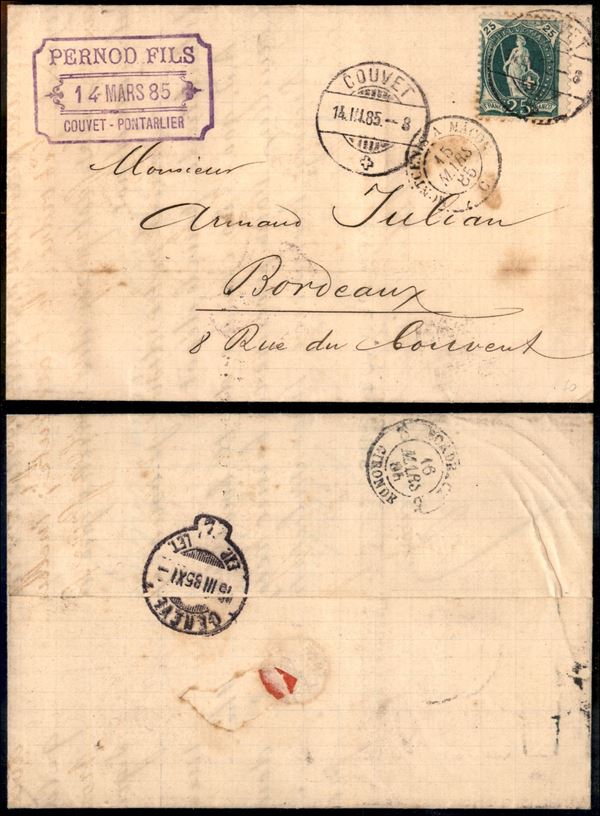 PERNOD FILS
14 MARS 85
COUVET - PONTARLIER
COUVET
14. III. 85. - 8
25 25
25
A MACON
15
MARS
85
Monsieur
Armand Julian
Bordeaux
8 Rue du Couvent
BORDEAUX
16
MARS
85
GIRONDE
EXP. LET.
III 85 XI
GENÈVE